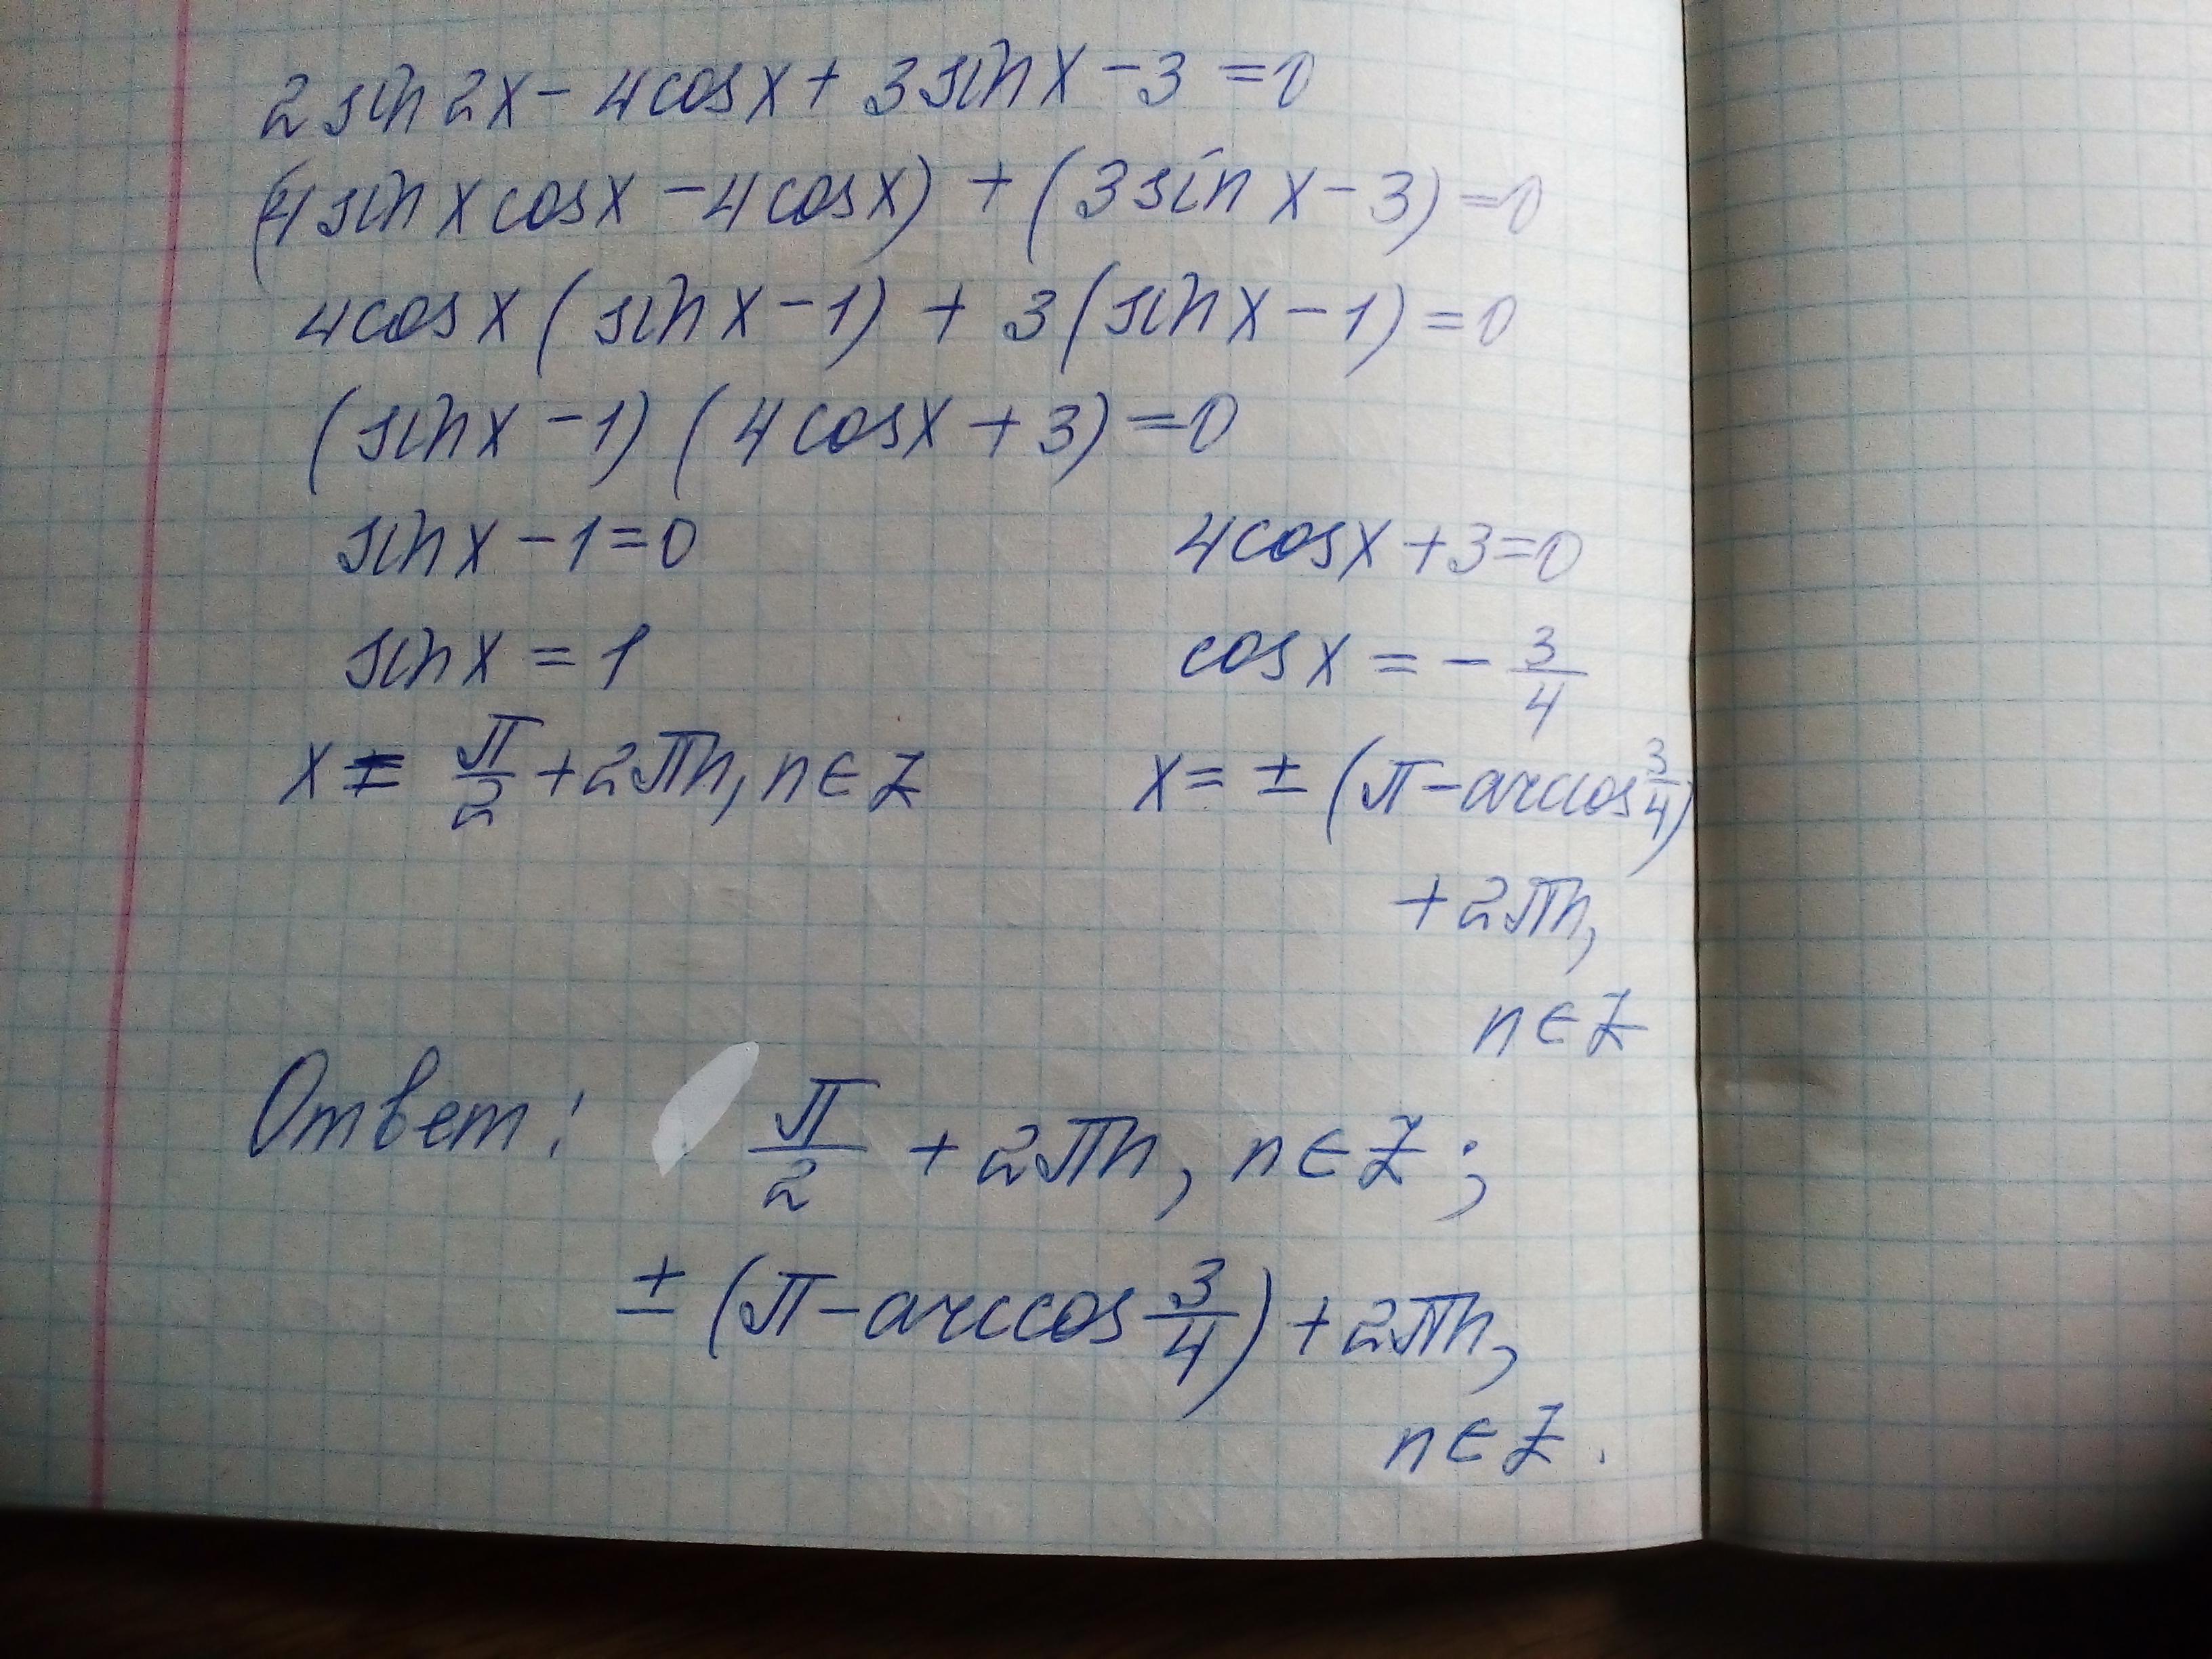 2 sin 2x - 4cosx + 3 sinx - 3 = 0
(4 sin x cosx - 4cosx) + (3 sin x - 3) = 0
4cosx (sinx - 1) + 3 (sinx - 1) = 0
(sinx - 1) (4cosx + 3) = 0
sinx - 1 = 0 4cosx + 3 = 0
sinx = 1 cosx = - 3/4
x = π/2 + 2πn, n ∈ Z x = ± (π - arccos 3/4)
+ 2πn,
n ∈ Z
Ответ: π/2 + 2πn, n ∈ Z ;
± (π - arccos 3/4) + 2πn,
n ∈ Z .